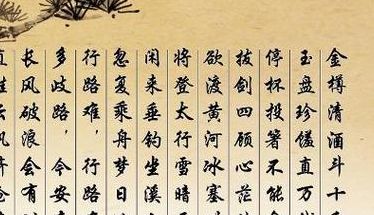 金樽清酒斗十千
玉盘珍馐直万
停杯投箸不能
拔剑四顾心茫
欲渡黄河冰塞
将登太行雪暗
闲来垂钓坐溪
忽复乘舟梦日
行路难，行路
多歧路，今安
长风破浪会有